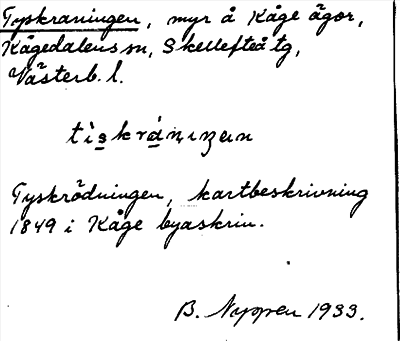 Tyskraningen, myr å Kåge ägor,
Kågedalens sn, Skellefteå tg,
Västerb. l.
Tyskrödningen, kartbeskrivning
1849 i Kåge byaskrin.
B. Nyppen 1933.